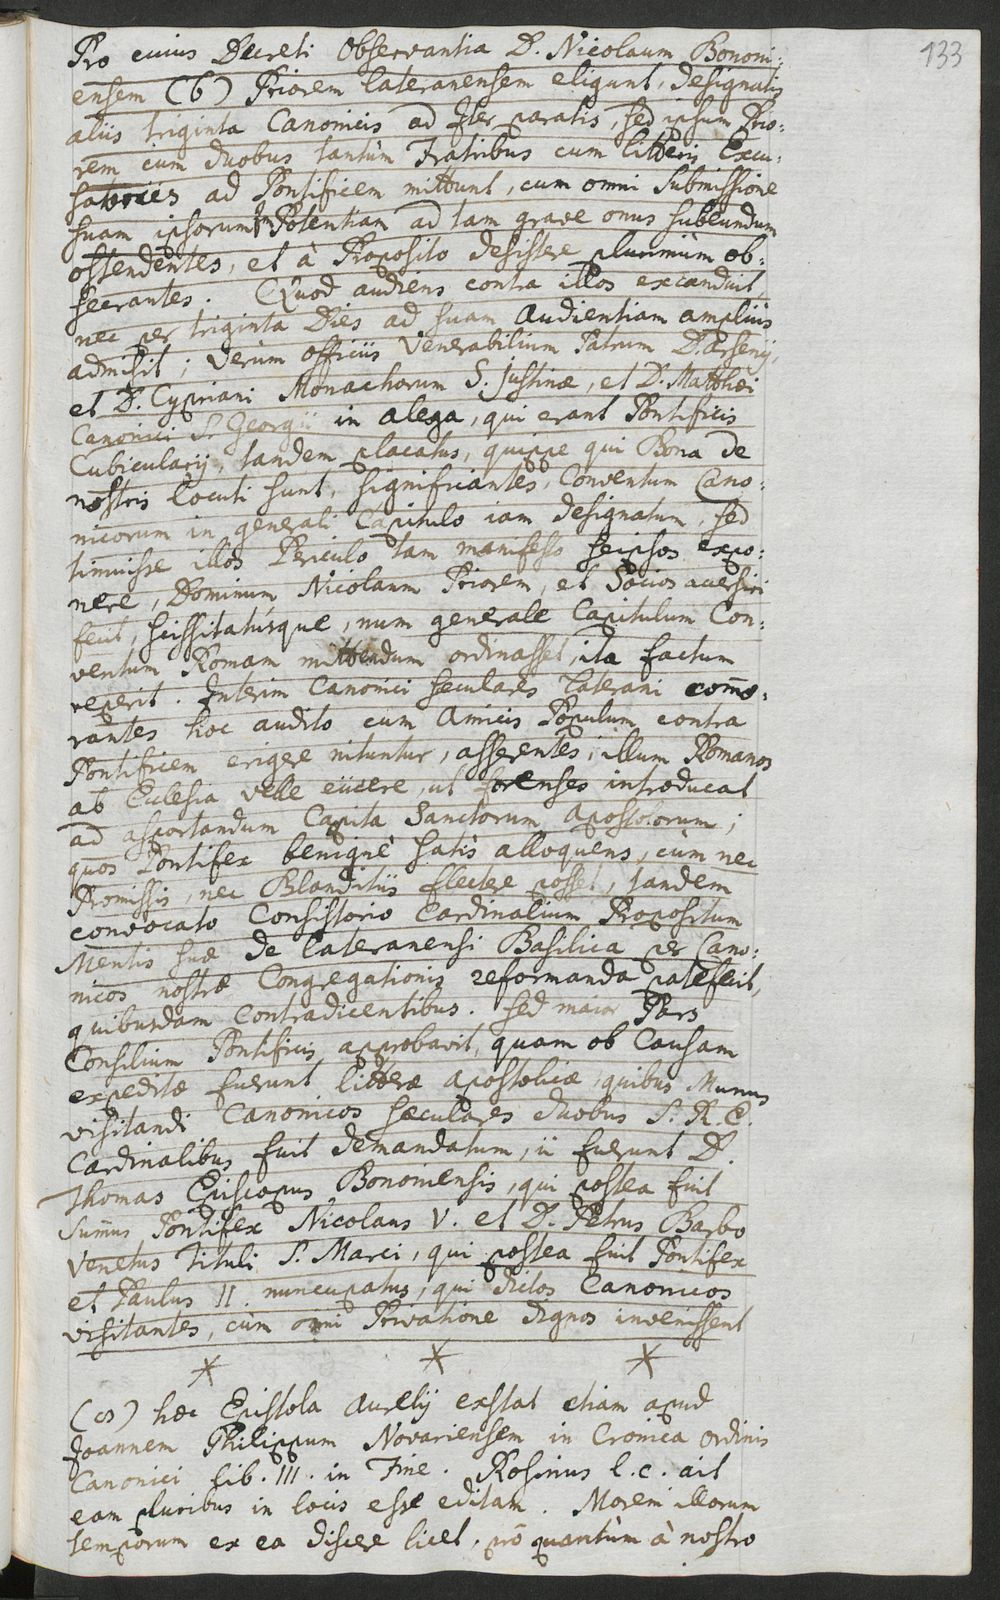 133
Pro cuius Decreti Observantia D. Nicolaum Bononi-
ensem (b) Priorem Lateranensem eligunt, designatis
aliis triginta Canonicis ad Iter paratis, sed ipsum Prio-
rem cum duobus tantùm Fratribus cum litteris Excu-
satoriis ad Pontificem mittunt, cum omni Submissione
suam ipsorum Potentiam ad tam grave onus subeundum
ostendentes, et à Proposito desistere plurimùm ob-
secrantes. Quod audiens contra illos excanduit,
nec per triginta Dies ad suam Audientiam ampliùs
admisit; verùm officiis Venerabilium Patrum D. Arsenij,
et D. Cypriani Monachorum S. Justinæ, et D. Matthæi
Canonici S. Georgii in alega, qui erant Pontificis
Cubicularij, tandem placatus, quippe qui Bona de
nostris locuti sunt, significantes, Conventum Cano-
nicorum in generali Capitulo iam designatum, sed
timuisse illos Periculo tam manifesto seipsos expo-
nere, Dominum Nicolaum Priorem, et Socios accersiri
fecit, scissitatusque, num generale Capitulum Con-
ventum Romam mittendum ordinasset, ita factum
reperit. Interim Canonici seculares Laterani com̄o-
rantes hoc audito cum Amicis Populum contra
Pontificem erigere nituntur, asserentes, illum Romanos
ab Eclesia velle eiicere, ut forenses introducat
ad asportandum Capita Sanctorum Apostolorum;
quos Pontifex benignè satis alloquens, cùm nec
Promissis, nec Blanditiis flectere posset, tandem
convocato Consistorio Cardinalium Propositum
Mentis suæ de Lateranensi Basilica per Cano-
nicos nostræ Congregationis reformanda patefecit,
quibusdam Contradicentibus. Sed maior Pars
Consilium Pontificis approbavit, quam ob Causam
expeditæ fuerunt litteræ Apostolicæ, quibus Munus
visitandi Canonicos sæculares duobus S. R. E.
Cardinalibus fuit demandatum, ii fuerunt D.
Thomas Episcopus Bononiensis, qui postea fuit
Sum̄us Pontifex Nicolaus V. et D. Petrus Barbo
Venetus Tituli S. Marci, qui postea fuit Pontifex
et Paulus II nuncupatus, qui dictos Canonicos
visitantes, cùm omni Privatione dignos invenissent
* * *
(a) hæc Epistola Aurelij exstat etiam apud
Joannem Philippum Novariensem in Cronica ordinis
Canonici Lib. III. in Fine. Rosinus l. c. ait
eam pluribus in locis esse editam. Morem illorum
temporum ex ea discere licet, prō quantùm à nostro